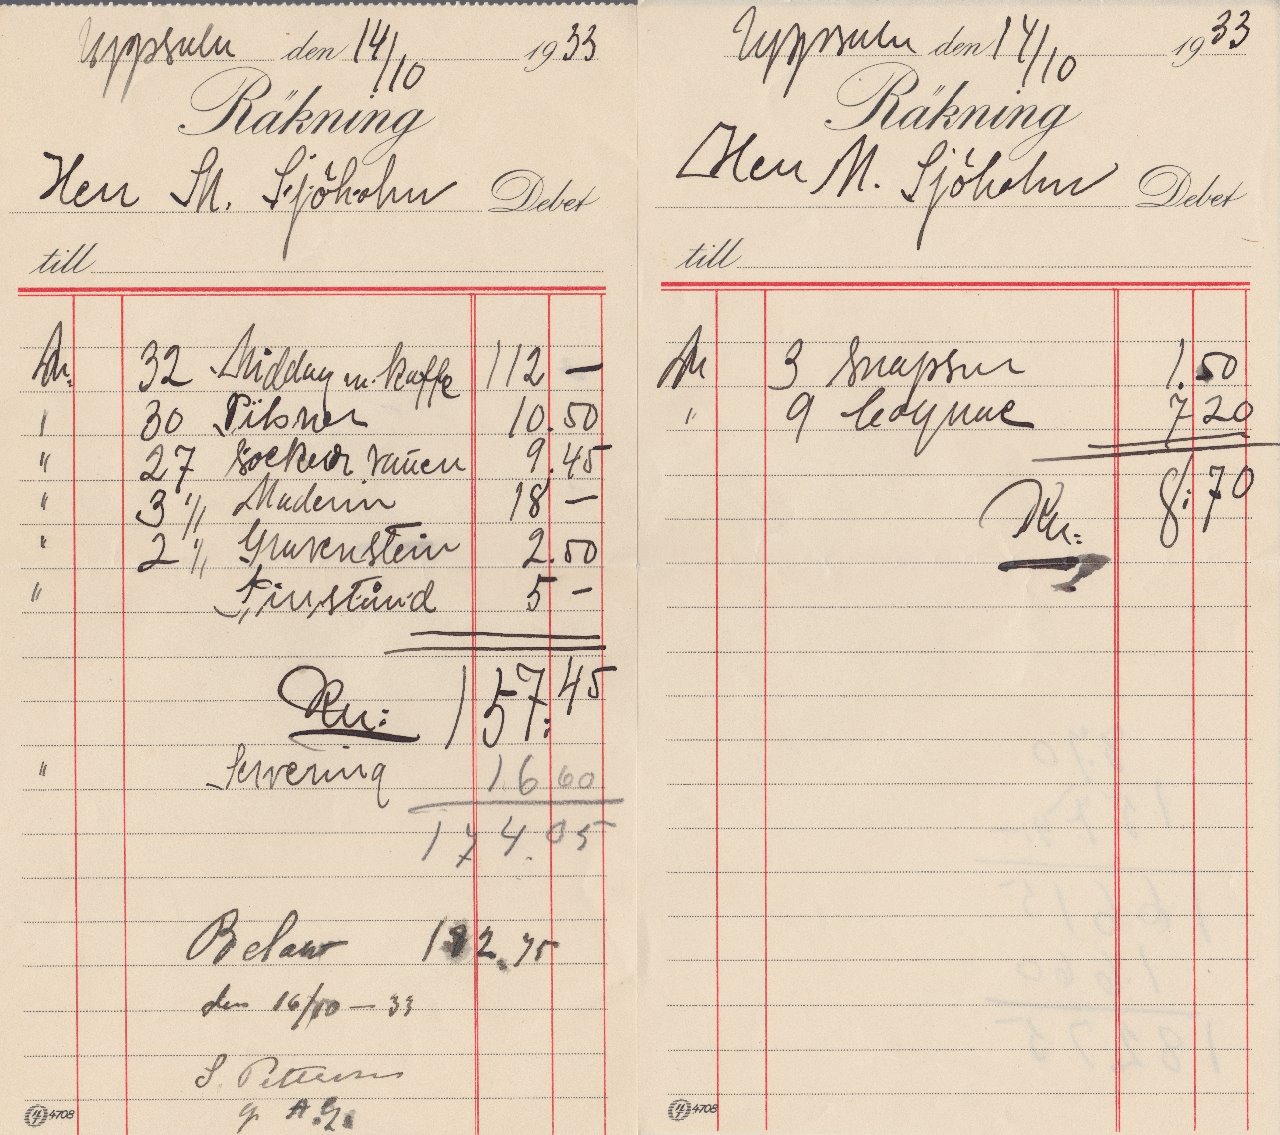 Uppsala den 14/10 1933
Räkning
Herr M. Sjöholm Debet
till
32 Middag m. kaffe 112 —
30 Pilsner 10.50
" 27 Sockervatten 9.45
" 3 1/1 Madeira 18 —
" 2 1/1 Gravenstein 2.50
" 5 —
Kr: 157.45
" Servering 16 60
174.05
182.75
den 16/10 — 33
S. Petterson
4708
Uppsala den 14/10 1933
Räkning
Herr M. Sjöholm Debet
till
3 Snapsar 1.50
" 9 Cognac 7 20
Kr: 8:70
4708